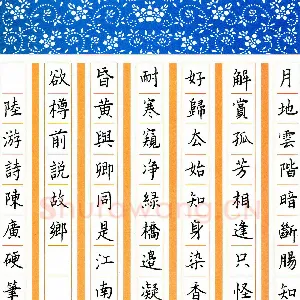 月地雲階暗斷腸知
解賞孤芳相逢只怪
好歸厺始知身染香
耐寒窺淨綠橋邉凝
昏黃與卿同是江南
欲樽前説故鄉
陸游詩陳廣硬筆